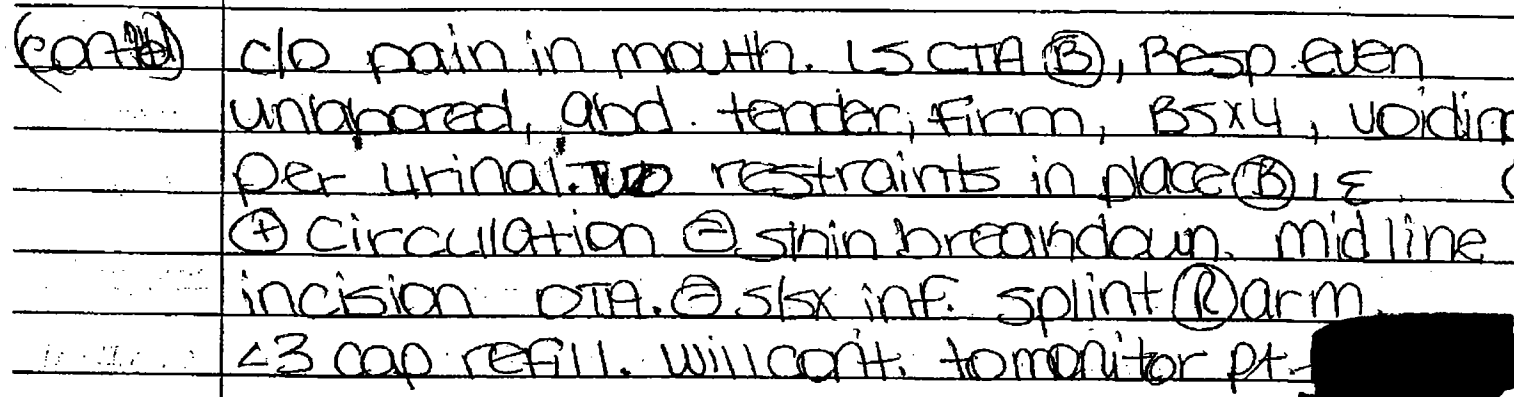 (cont'd) c/o pain in mouth. LS CTA Ⓑ, Resp. even
unlabored, abd. tender, firm, BSx4, voiding
per urinal. Two restraints in place Ⓑ LE.
⊕ Circulation ⊖ skin breakdown. midline
incision OTA. ⊖ s/sx inf. splint Ⓡ arm.
<3 cap refill. will cont. to monitor pt.